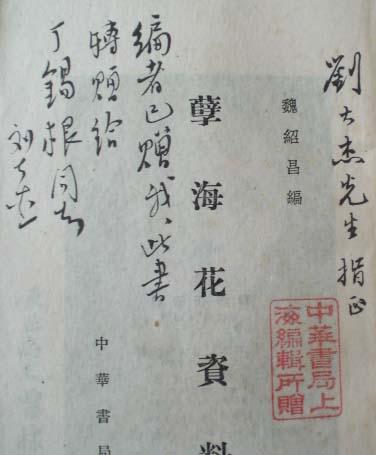 劉大杰先生指正
魏紹昌編
孽海花資料
中華書局
中華書局上
海編輯所贈
編者已贈我,此書
轉贈给
丁錫根同志
刘大杰